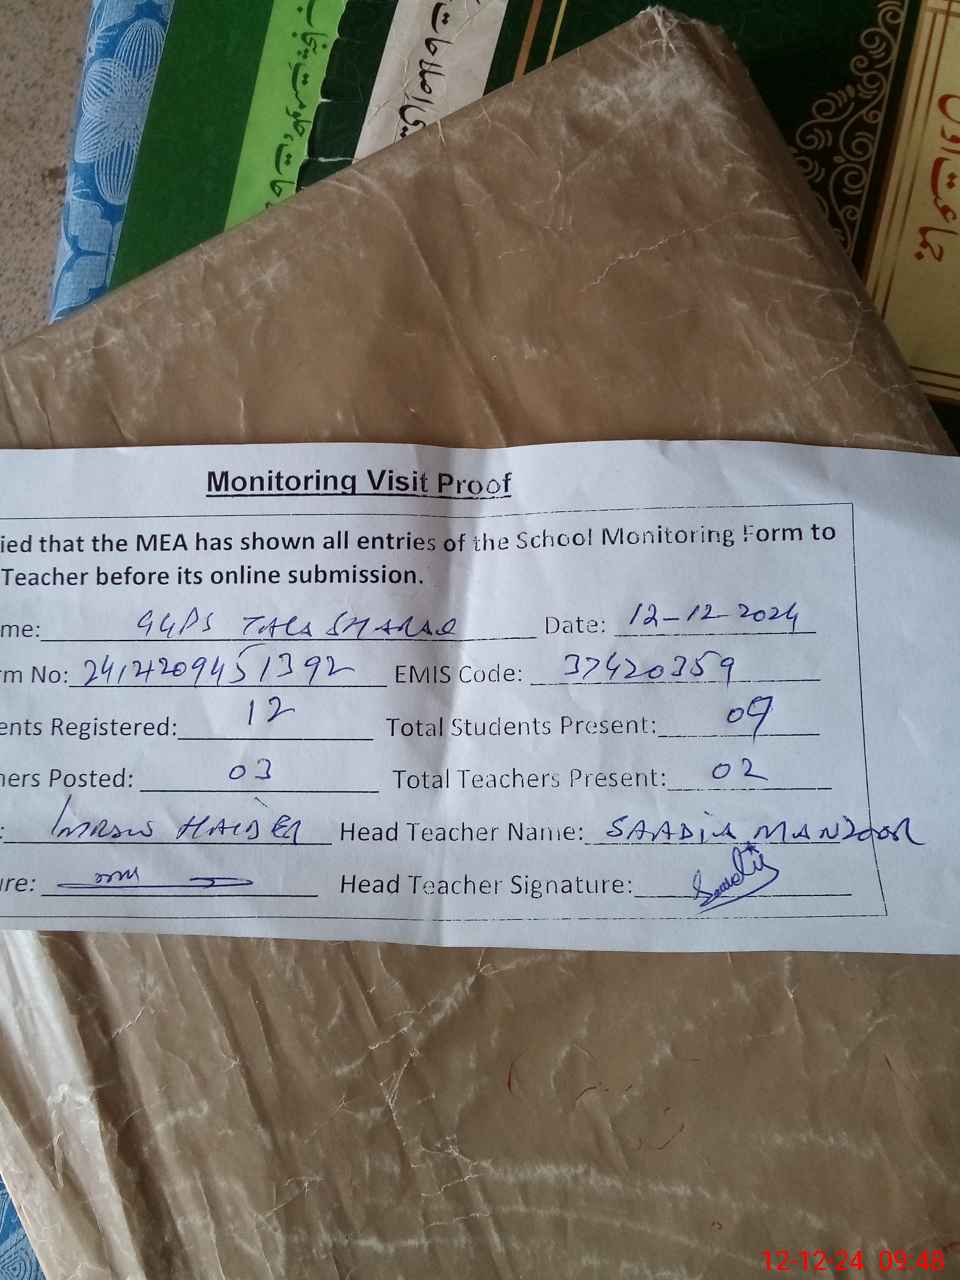 جماعت اول
Monitoring Visit Proof
ied that the MEA has shown all entries of the School Monitoring Form to
Teacher before its online submission.
me: GGPS Date: 12-12-2024
rm No: 2412209451392 EMIS Code: 37420359
ents Registered: 12 Total Students Present: 09
hers Posted: 03 Total Teachers Present: 02
: Imran HAIDER Head Teacher Name: SAADIA MANZOOR
ure: Head Teacher Signature: Saadia
12-12-24 09:48